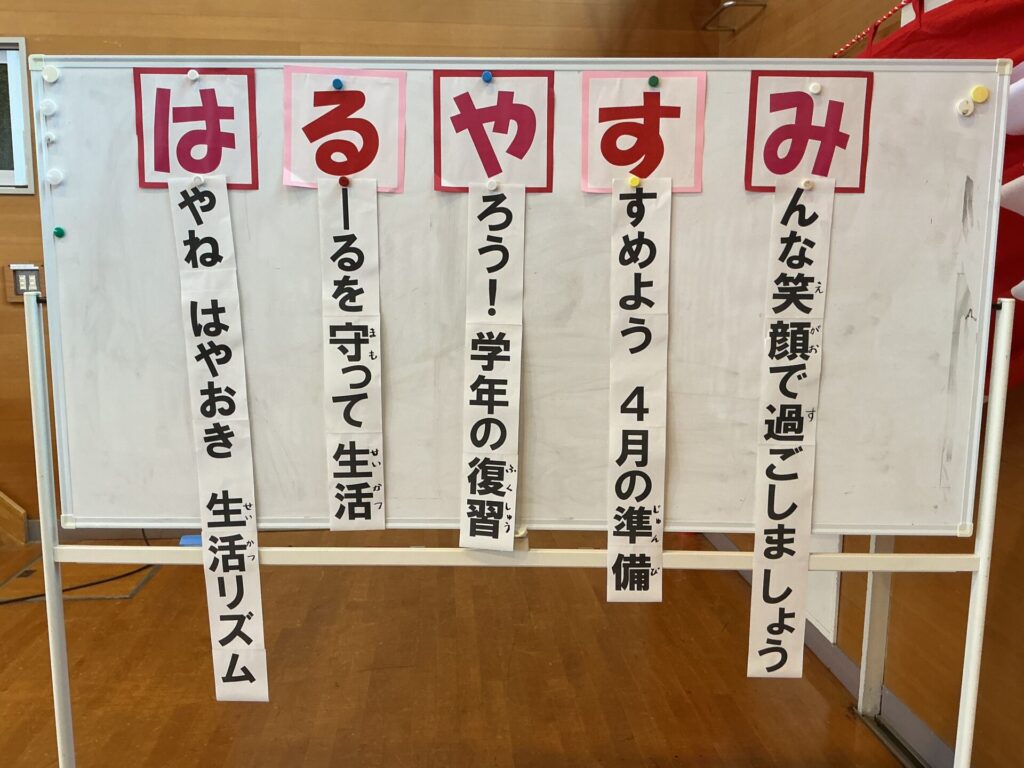 はやね はやおき 生活リズム
るーるを守って 生活
やろう！学年の復習
すすめよう 4月の準備
みんな笑顔で過ごしましょう